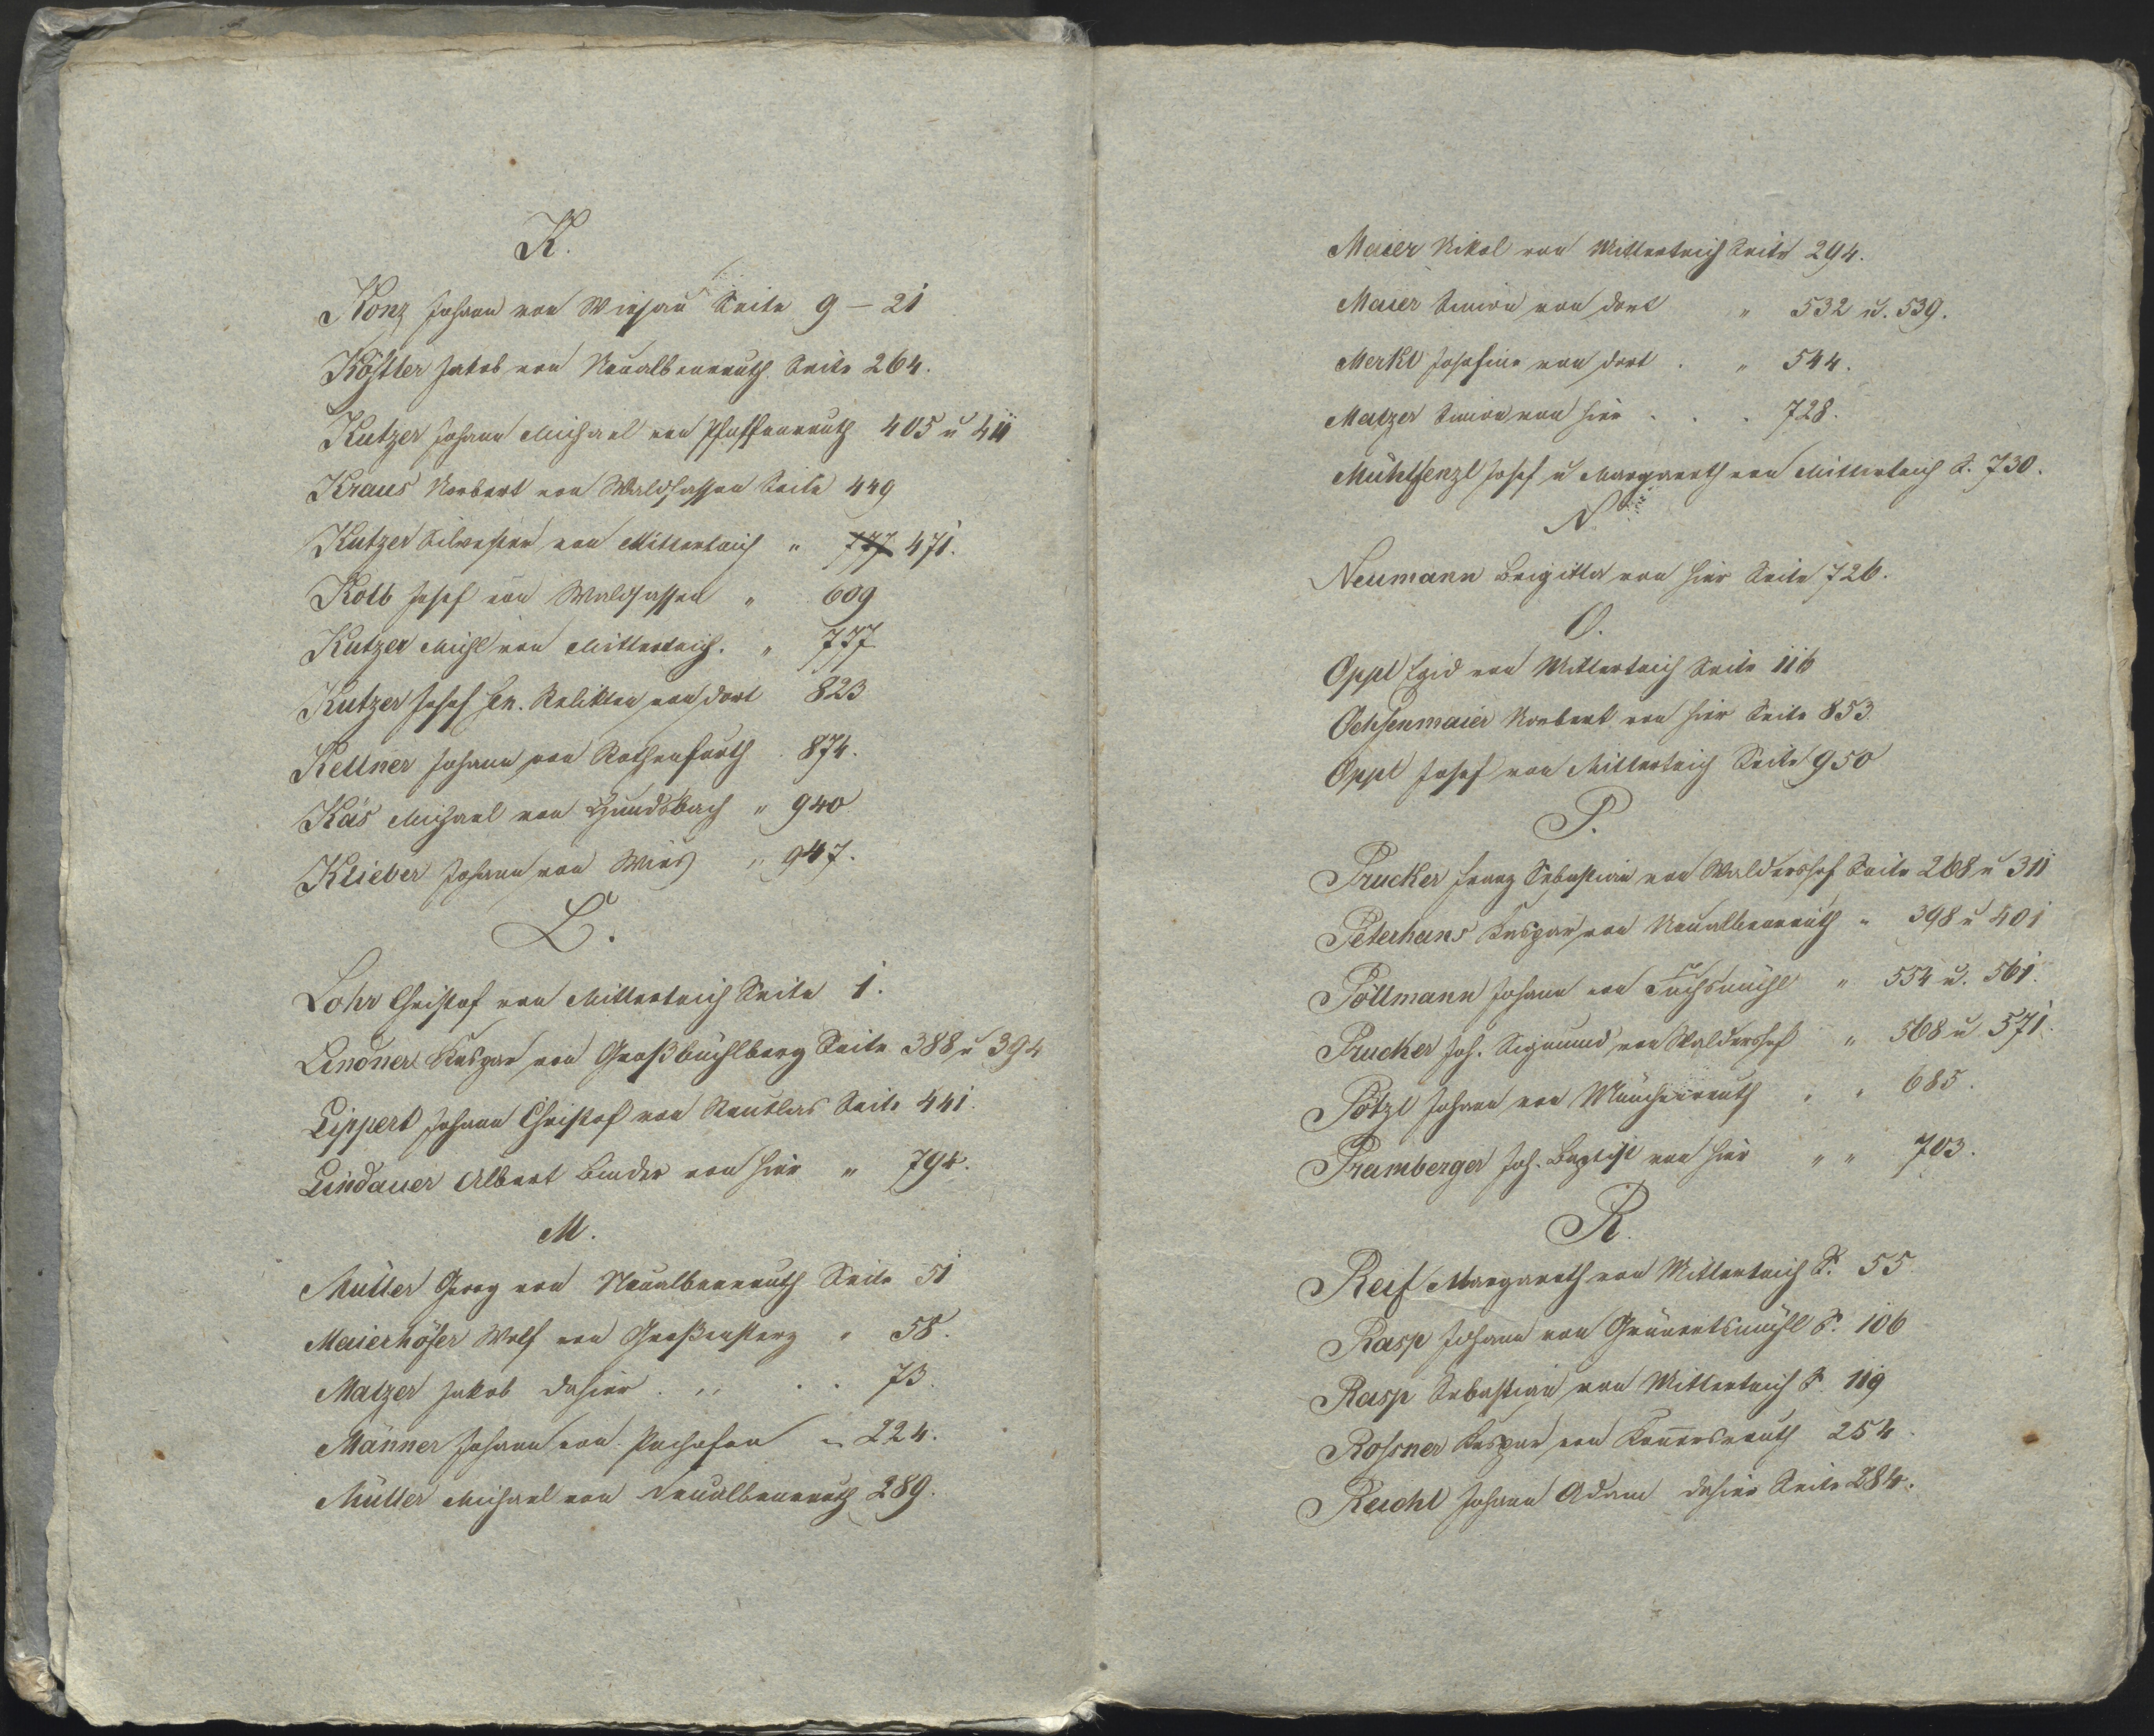 K.
Konz Johann von Wiesau Seite 9 – 21
Köstler Jakob von Neualbenreuth Seite 264.
Kutzer Johann Michael von Pfaffenreuth 405 u 411
Kraus Norbert von Waldsassen Seite 449
Kutzer Silvester von Mitterteich " 777 471.
Kolb Josef von Waldsassen " 609
Kutzer Michl von Mitterteich. " 777
Kutzer Josef sen. Relikten von dort 823
Kellner Johann von Rothenfurth 874.
Käs Michael von Hundsbach " 940
Klieber Johann von Wies " 947.
L.
Lohr Christof von Mitterteich Seite 1.
Lindner Kaspar von Großbüchlberg Seite 388 u 394
Lippert Johann Christof von Reutlas Seite 441.
Lindauer Albert Binder von hier " 794.
M.
Müller Georg von Neualbenreuth Seite 51
Maierhöfer Wolf von Großensterz " 58.
Matzer Jakob dahier . " . . 73.
Männer Johann von Pechofen " 224.
Müller Michael von Neualbenreuth 289.
Maier Nikol von Mitterteich Seite 294.
Maier Simon von dort " 532 u. 539.
Merkl Josefine von dort . " 544.
Matzer Simon von hier . . . 728.
Mühlfenzl Josef u Margareth von Mitterteich S. 730.
N
Neumann Brigitta von hier Seite 726.
O.
Oppl Egid von Mitterteich Seite 116
Ochsenmaier Norbert von hier Seite 853
Oppl Josef von Mitterteich Seite 950
P.
Prucker Franz Sebastian von Waldershof Seite 268 u 311
Peterhans Kaspar von Neualbenreuth " 398 u 401
Pöllmann Johann von Fuchsmühl " 554 u. 561.
Prucker Joh. Sigmund von Waldershof " 568 u 571.
Pötzl Johann von Münchenreuth " " 685.
Pramberger Joh. Baptist von hier " " 703.
R.
Reif Margareth von Mitterteich S. 55
Rasp Johann von Grünertsmühl S. 106
Rasp Sebastian von Mitterteich S. 119
Rosner Kaspar von Konnersreuth 254.
Reichl Johann Adam dahier Seite 284.